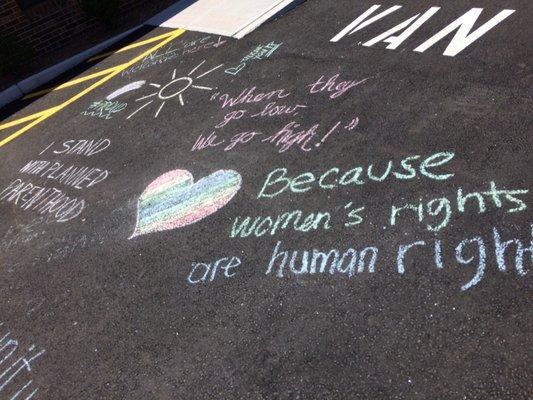 VAN
ALL are
welcome here!
"When they
go low
We go high!"
I STAND
WITH PLANNED
PARENTHOOD
Because
women's rights
are human right